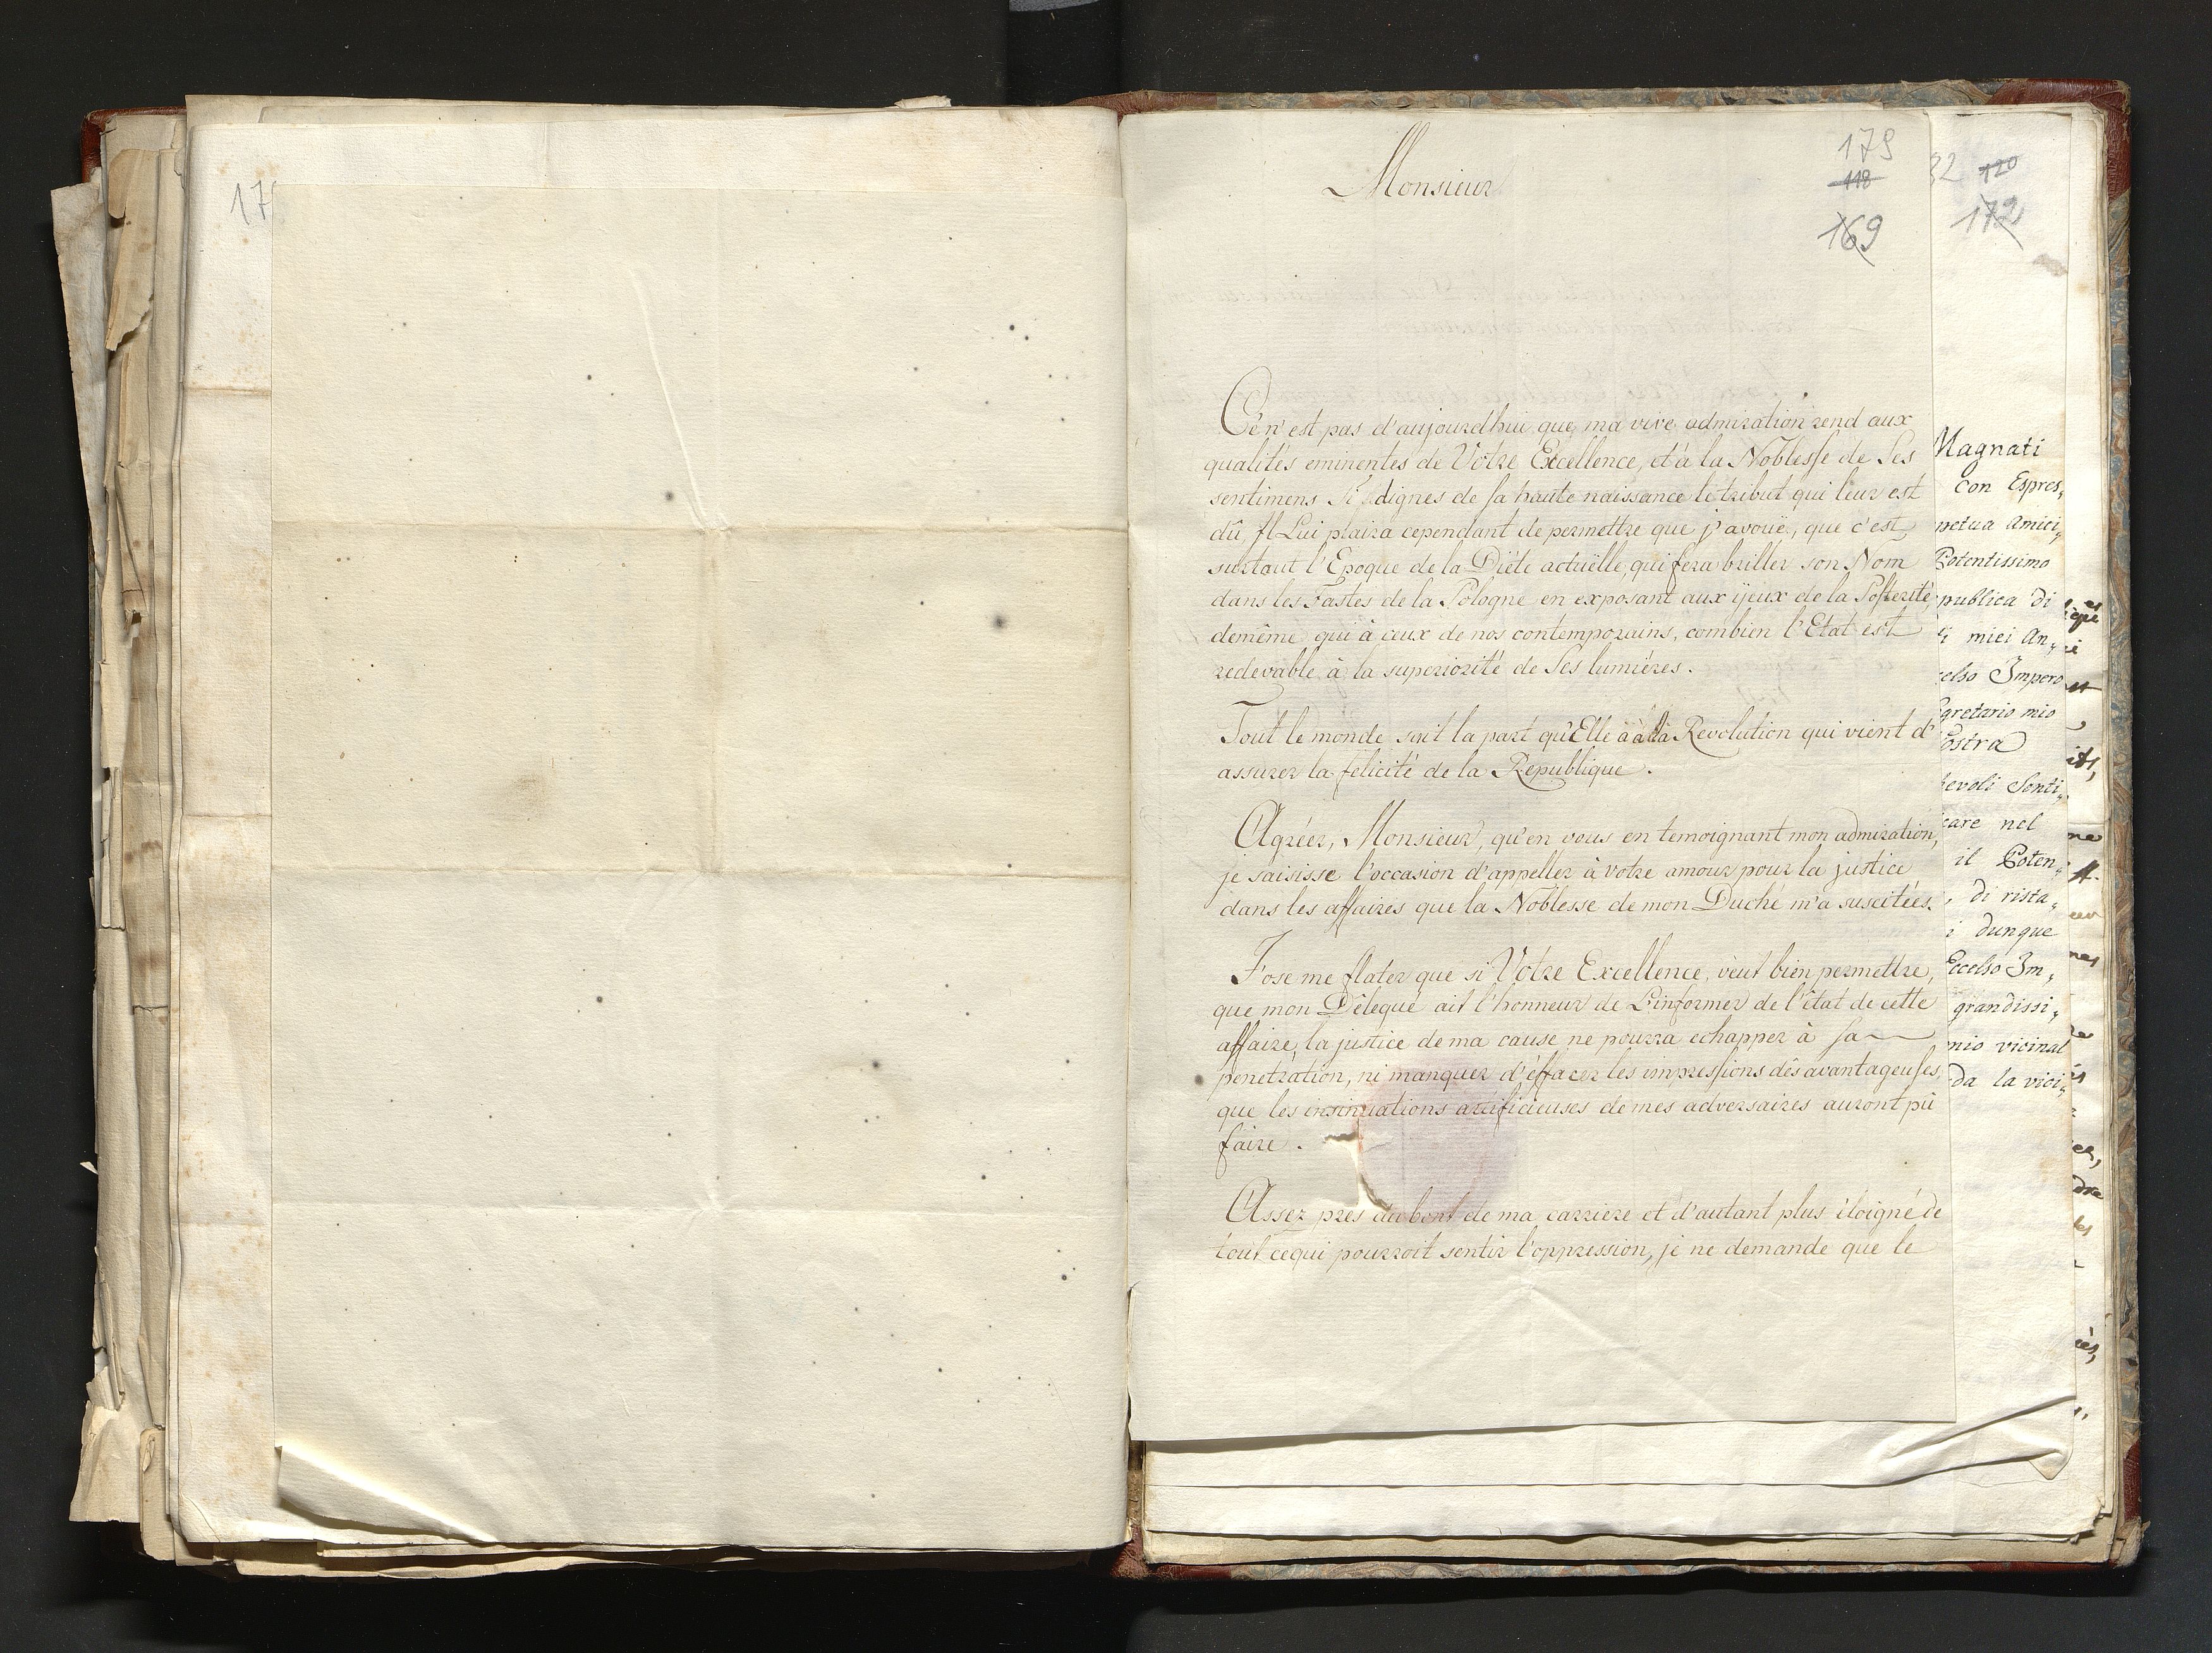 17
179
118
169
Monsieur
Cé n'est pas d'aujourdhui que ma vive admiration rend aux
qualités eminentes de Votre Excellence, et à la Noblesse de Ses
sentimens Si dignes de sa haute naissance le tribut qui leur est
dû, Il Lui plaira cependant de permettre que j'avoüe, que c'est
surtout l'Epoque de la Diéte actuëlle, qui fera briller son Nom
dans les Fastes de la Pologne en exposant aux ÿeux de la Posterité,
demême qu'à ceux de nos contemporains, combien l'Etat est
redevable à la superiorité de Ses lumiéres.
Tout le monde sait la part qu'Elle a à la Revolution qui vient d'
assurer la felicité de la Republique.
Agréez, Monsieur, qu'en vous en temoignant mon admiration,
je saisisse l'occasion d'appeller à votre amour pour la justice
dans les affaires que la Noblesse de mon Duché m'a suscitées.
J'ose me flater que si Votre Excellence, veut bien permettre,
que mon Délegué ait l'honneur de L'informer de l'état de cette
affaire, la justice de ma cause ne pourra echapper à sa
penetration, ni manquer d'éffacer les impressions désavantageuses,
que les insinuations artificieuses de mes adversaires auront pû
faire.
Assez près du bout de ma carriere et d'autant plus éloigné de
tout cequi pourroit sentir l'oppression, je ne demande que le
32 120
172
Magnati
con Espres,
petua Amici,
Potentissimo
publica di
miei An,
celso Impero
gretario mio
ostra
evoli Senti,
care nel
il Poten,
, di rista,
i dunque
Eccelso Im,
grandissi,
mio vicinal
da la vici,